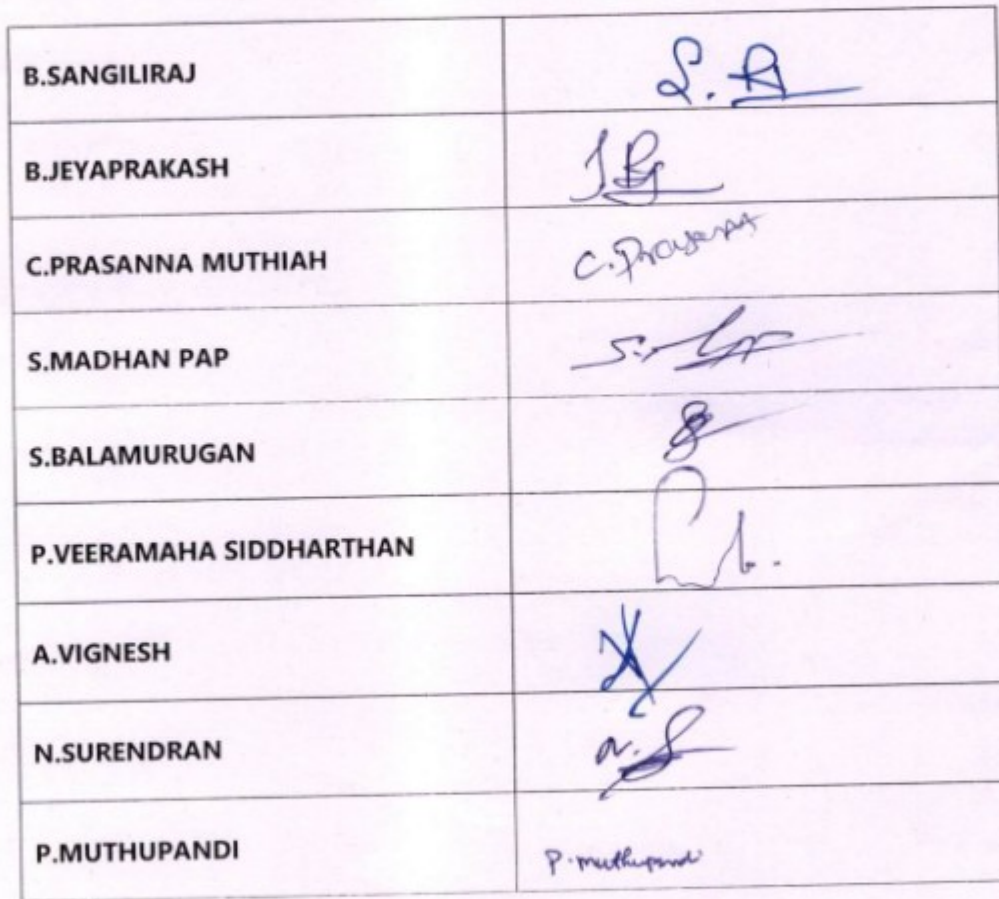 B.SANGILIRAJ
B.JEYAPRAKASH
C.PRASANNA MUTHIAH
C.
S.MADHAN PAP
S.BALAMURUGAN
P.VEERAMAHA SIDDHARTHAN
A.VIGNESH
N.SURENDRAN
P.MUTHUPANDI P.muthupandi